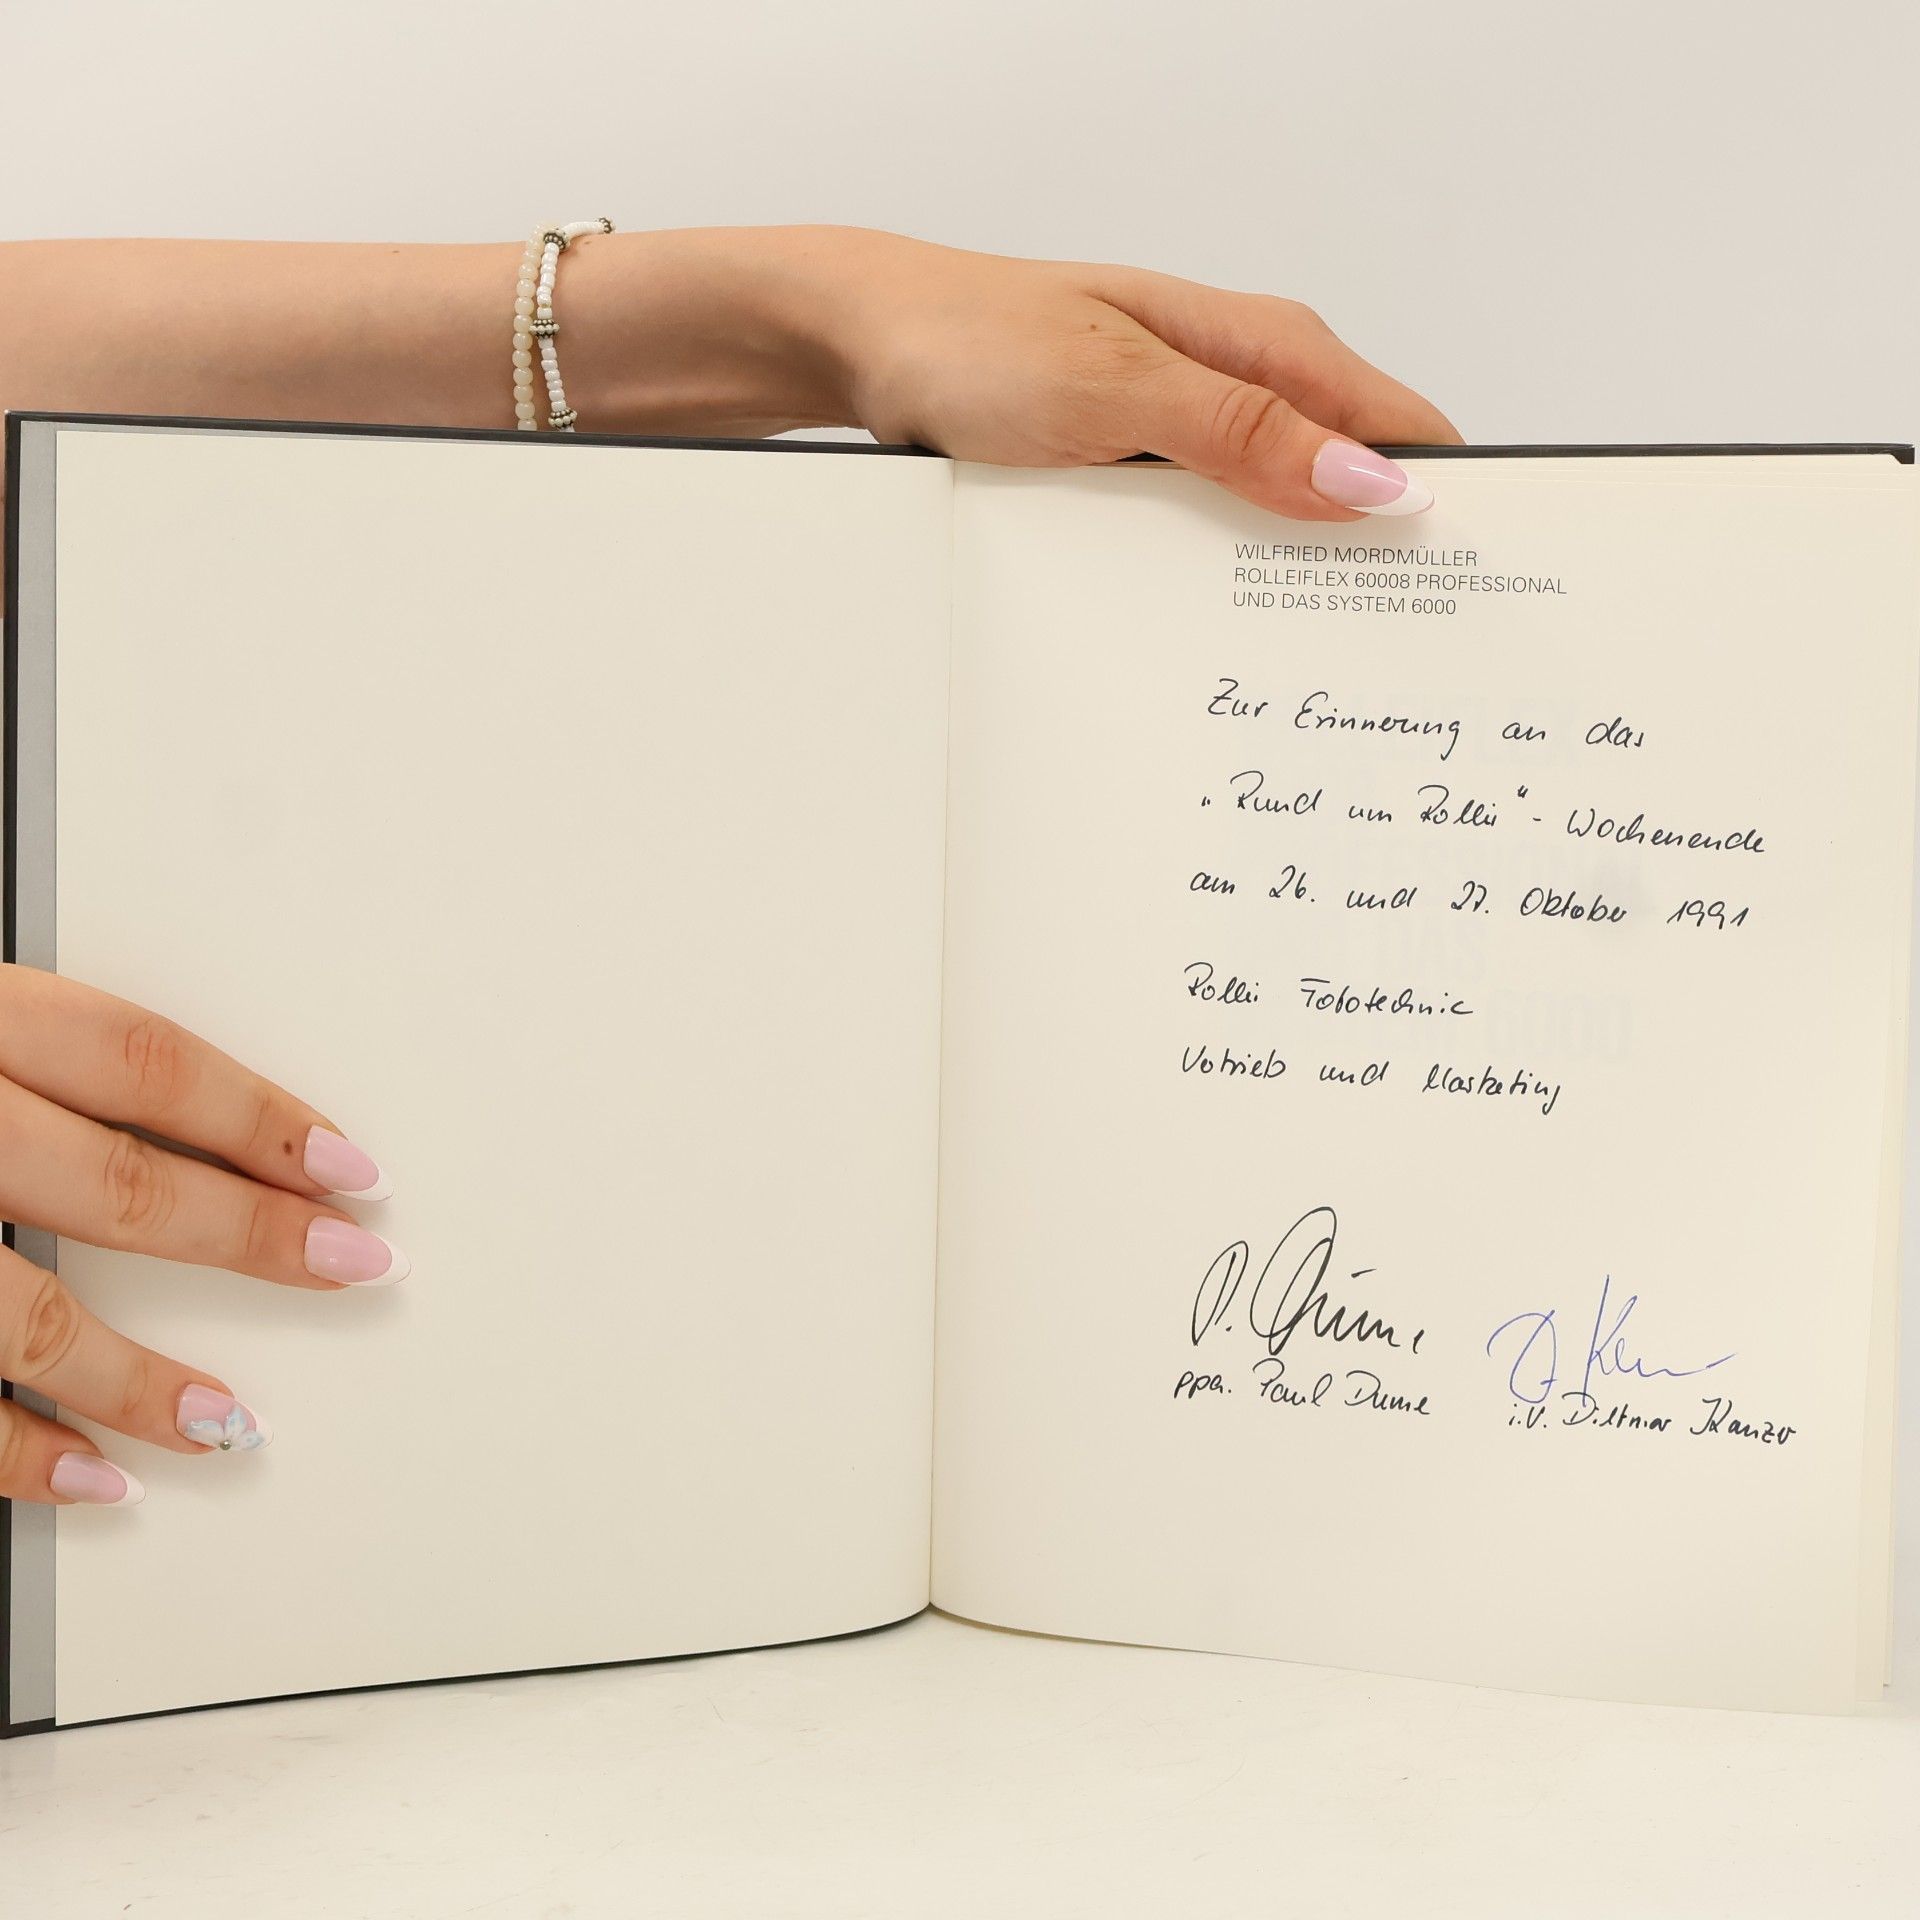 WILFRIED MORDMÜLLER
ROLLEIFLEX 60008 PROFESSIONAL
UND DAS SYSTEM 6000
Zur Erinnerung an das
„Rund um Rollei“- Wochenende
am 26. und 27. Oktober 1991
Rollei Fototechnic
Vertrieb und Marketing
P. Dume
ppa. Paul Dume i.V. Dietmar Kanzer